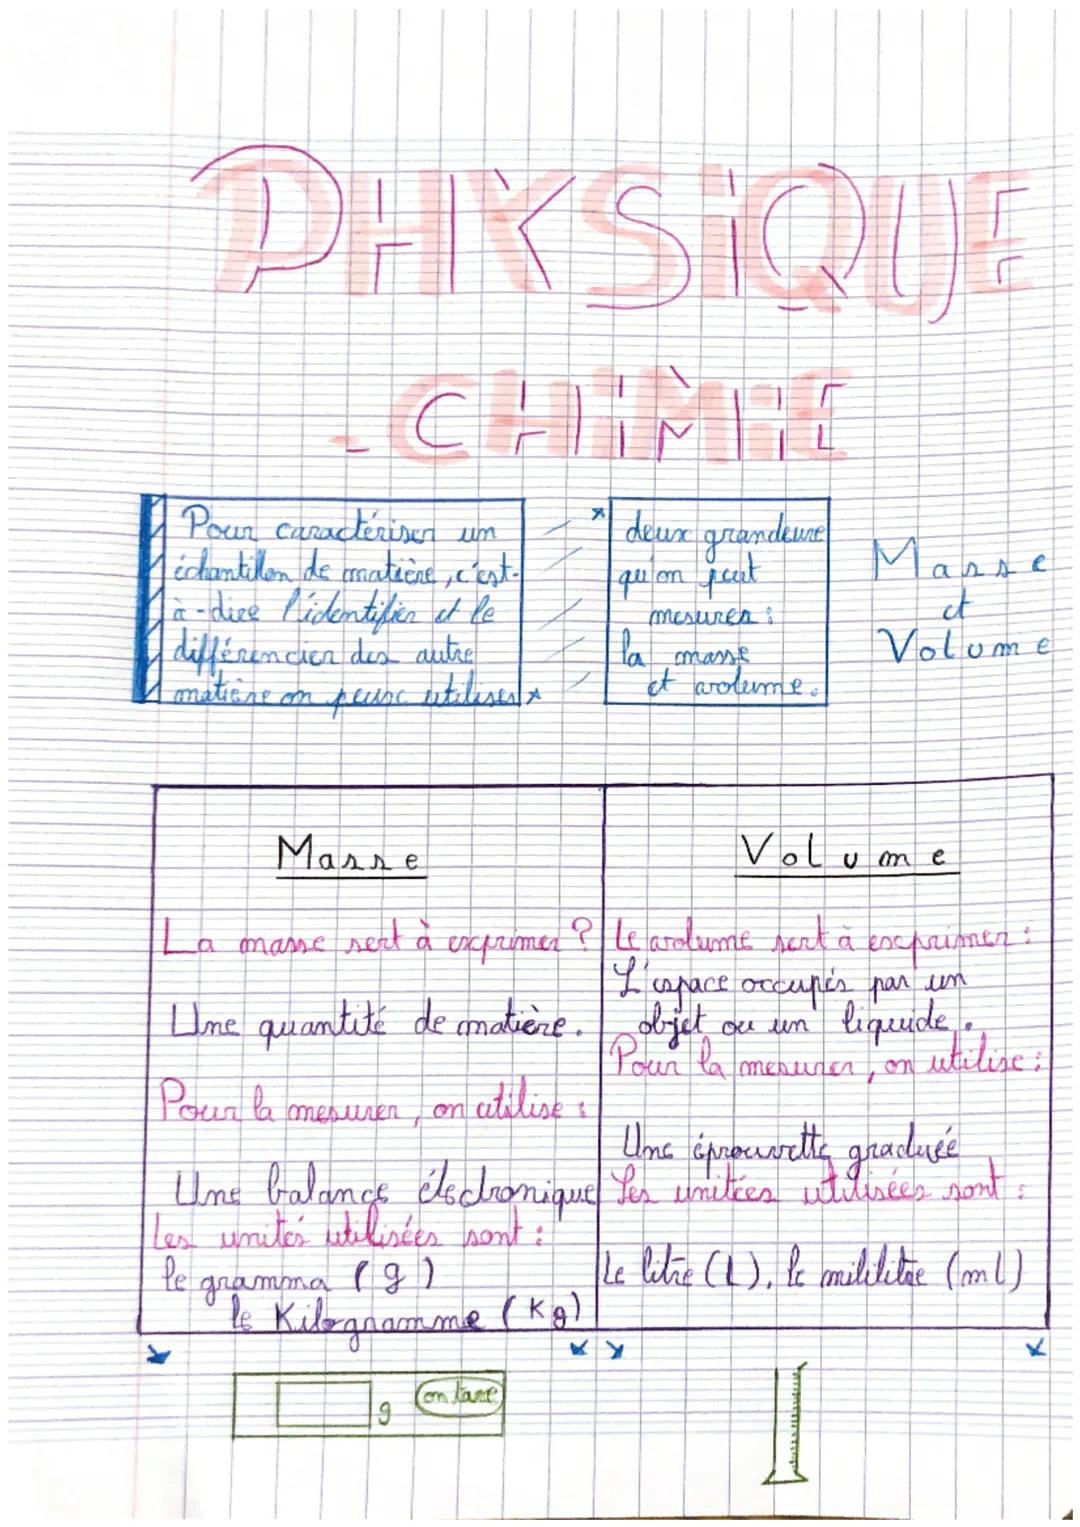 PHYSiQUE
-CHiMiE
Pour caractériser un
échantillon de matière, c'est-
à-dire l'identifier et le
différencier des autre
matière on peusc utiliser *
* deux grandeure
qu'on peut
mesurer :
la masse
et volume.
Masse
et
Volume
Masse
La masse sert à exprimer ?
Une quantité de matière.
Pour la mesurer, on utilise :
Une balance électronique
Les unités utilisées sont :
le gramma (g)
le Kilogramme (Kg)
Volume
Le volume sert à exprimer :
L'espace occupés par un
objet ou un liquide.
Pour la mesurer, on utilise :
Une éprouvette graduéé
Les unitées utilisées sont :
Le litre (l), le mililitre (ml)
g
on tare